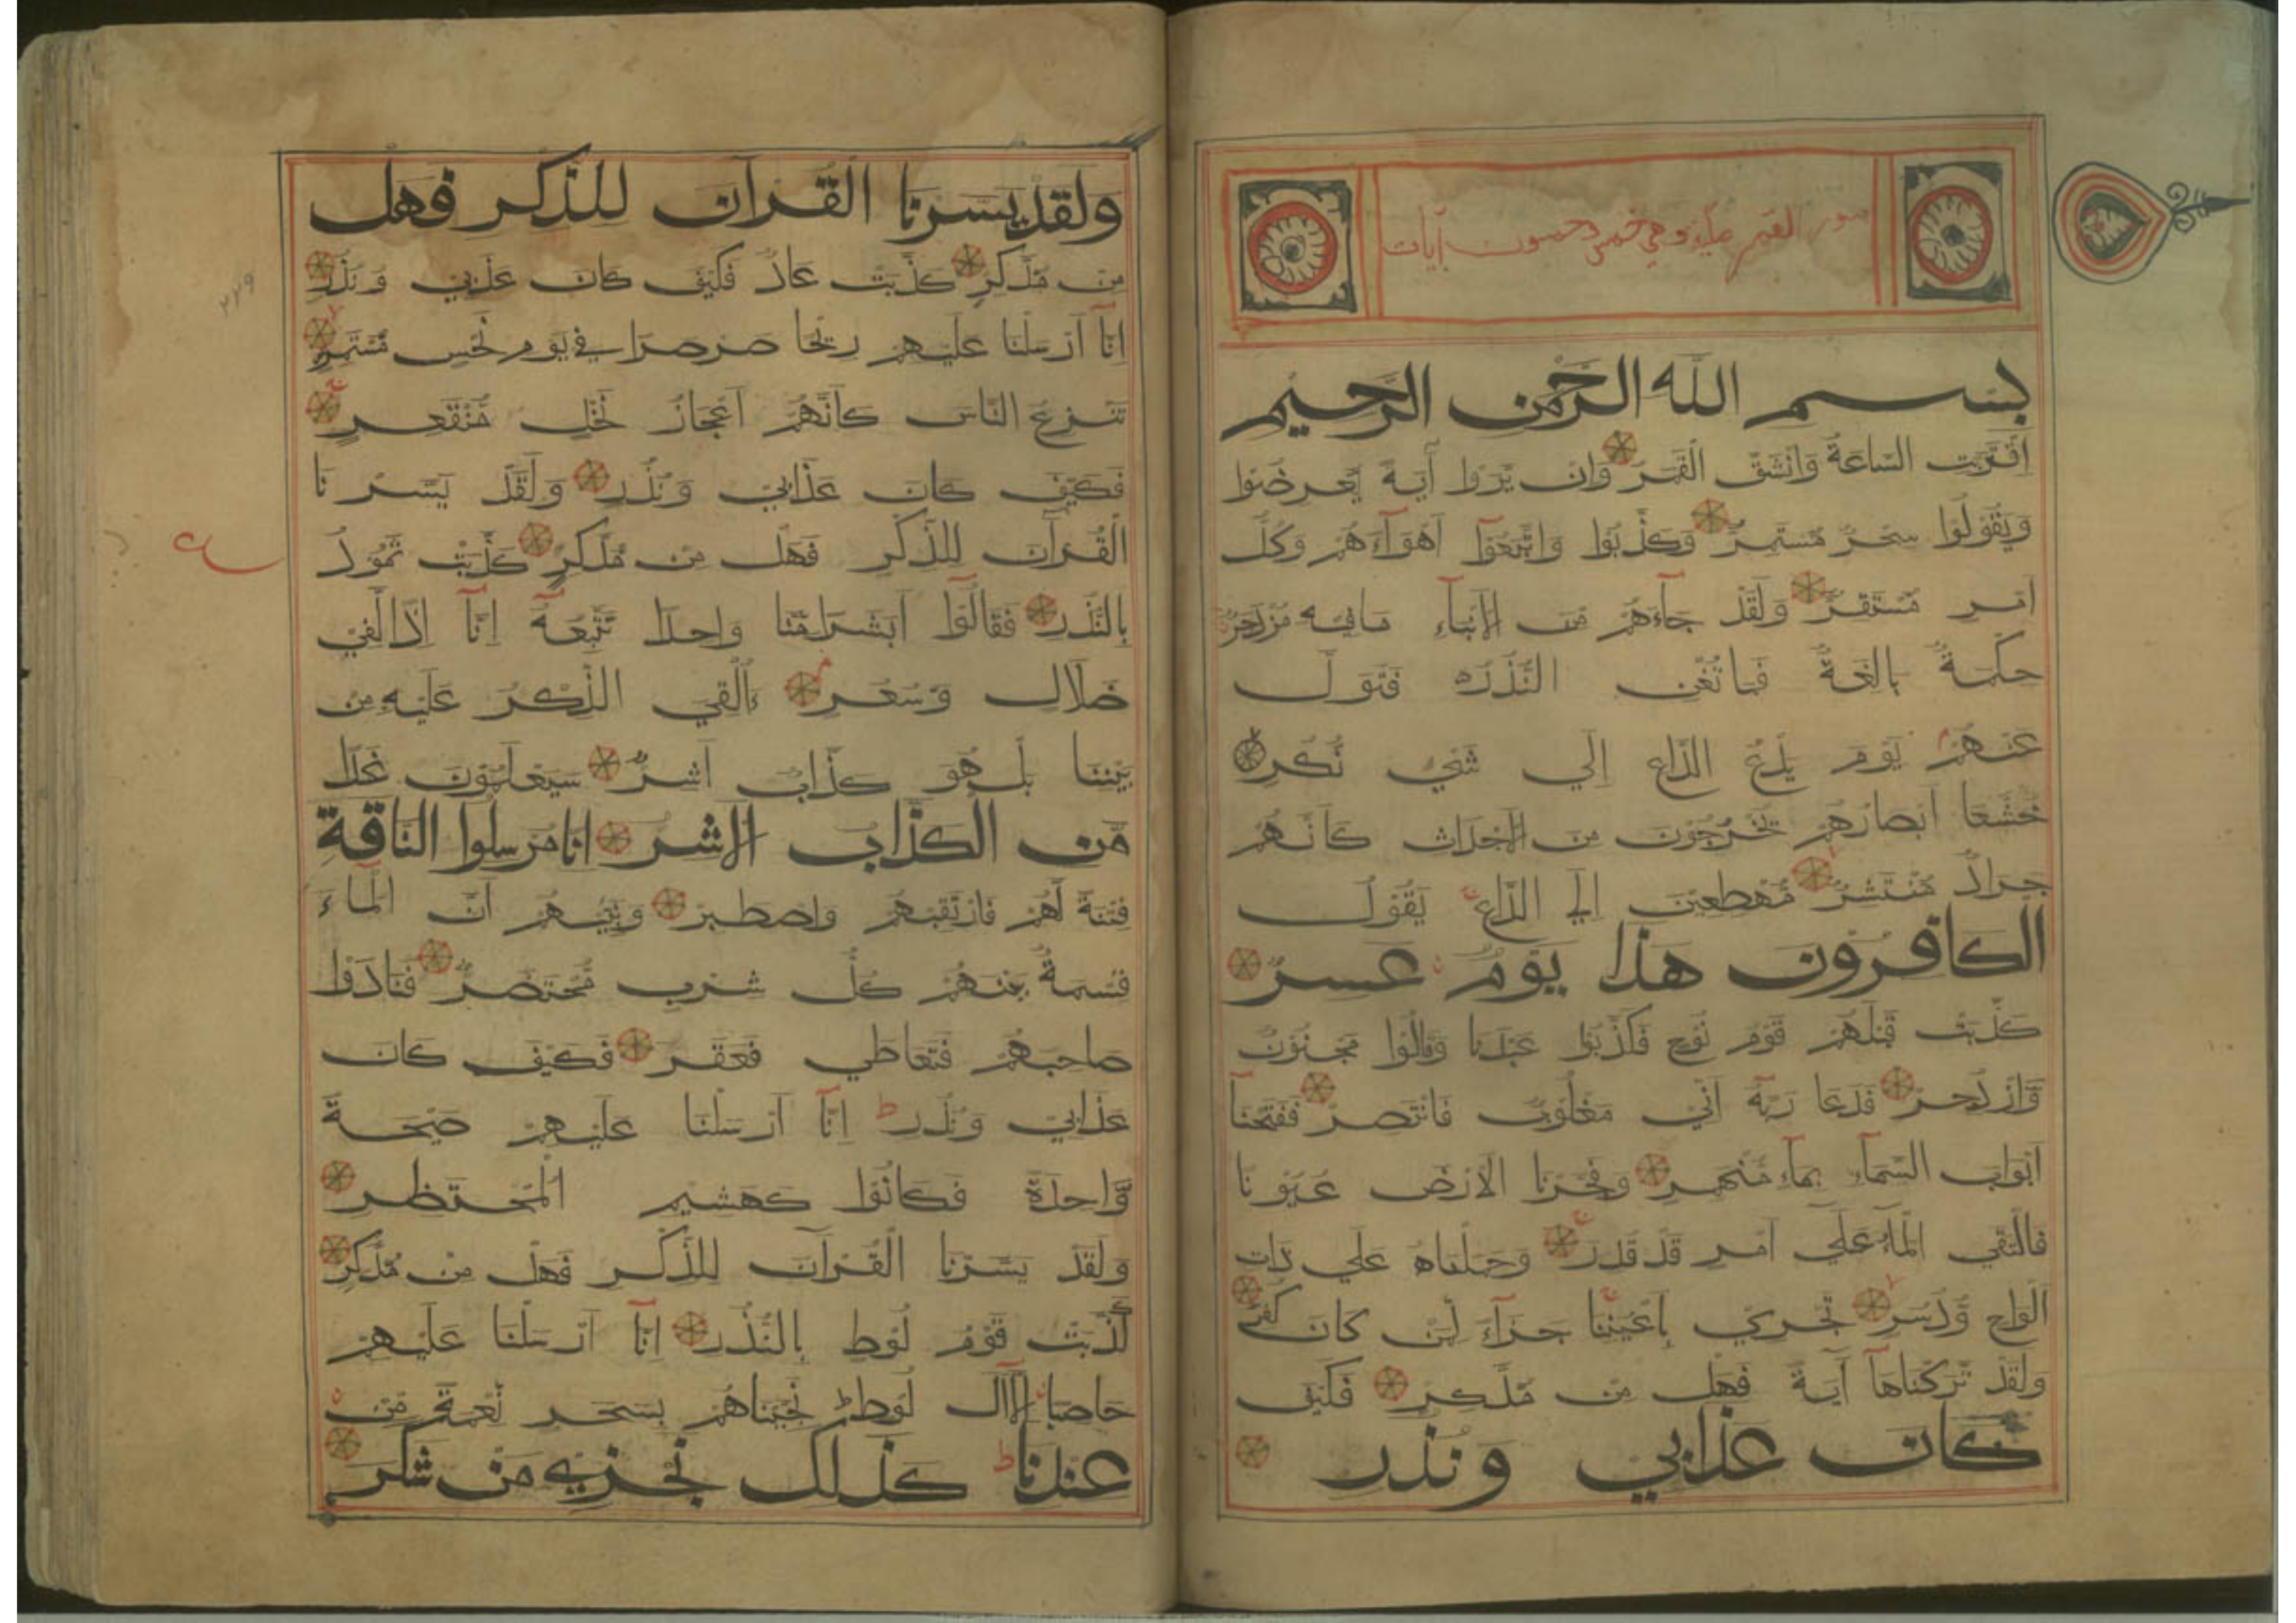 سورة القمر مكية وهي خمس وخمسون آيات
بسم الله الرحمن الرحيم
اقتربت الساعة وانشق القمر وان يروا آية يعرضوا
ويقولوا سحر مستمر وكذبوا واتبعوا اهواءهم وكل
امر مستقر ولقد جاءهم من الانباء ما فيه مزدجر
حكمة بالغة فما تغن النذر فتول
عنهم يوم يدع الداع الي شيء نكر
خشعا ابصارهم يخرجون من الاجداث كانهم
جراد منتشر مهطعين الي الداع يقول
الكافرون هذا يوم عسر
كذبت قبلهم قوم نوح فكذبوا عبدنا وقالوا مجنون
وازدجر فدعا ربه اني مغلوب فانتصر ففتحنا
ابواب السماء بماء منهمر وفجرنا الارض عيونا
فالتقي الماء علي امر قد قدر وحملناه علي ذات
الواح ودسر تجري باعيننا جزاء لمن كان كفر
ولقد تركناها آية فهل من مدكر فكيف
كان عذابي ونذر
ولقد يسرنا القرآن للذكر فهل
من مدكر كذبت عاد فكيف كان عذابي ونذر
انا ارسلنا عليهم ريحا صرصرا في يوم نحس مستمر
تنزع الناس كانهم اعجاز نخل منقعر
فكيف كان عذابي ونذر ولقد يسرنا
القرآن للذكر فهل من مدكر كذبت ثمود
بالنذر فقالوا ابشرا منا واحدا نتبعه انا اذا لفي
ضلال وسعر ءالقي الذكر عليه من
بيننا بل هو كذاب اشر سيعلمون غدا
من الكذاب الاشر انا مرسلوا الناقة
فتنة لهم فارتقبهم واصطبر ونبئهم ان الماء
قسمة بينهم كل شرب محتضر فنادوا
صاحبهم فتعاطي فعقر فكيف كان
عذابي ونذر انا ارسلنا عليهم صيحة
واحدة فكانوا كهشيم المحتظر
ولقد يسرنا القرآن للذكر فهل من مدكر
كذبت قوم لوط بالنذر انا ارسلنا عليهم
حاصبا الا آل لوط نجيناهم بسحر نعمة من
عندنا كذلك نجزي من شكر